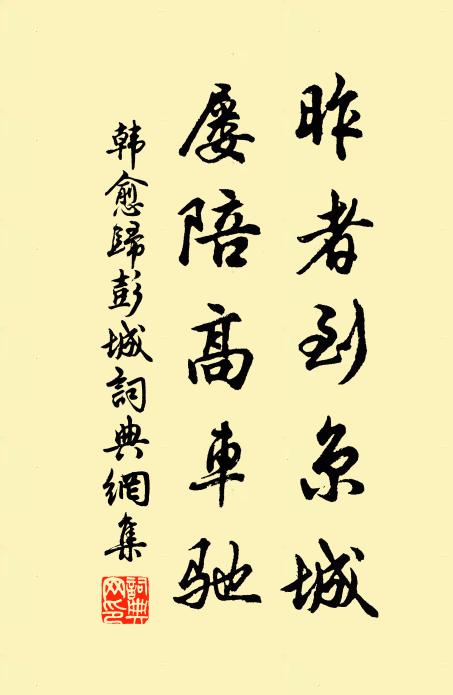 昨者到京城
屡陪高車馳
韩愈歸彭城詞典網集
詞典網印